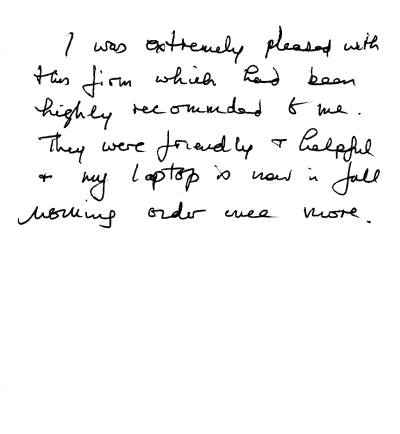 I was extremely pleased with
this firm which had been
highly recommended to me.
They were friendly + helpful
+ my laptop is now in full
working order once more.